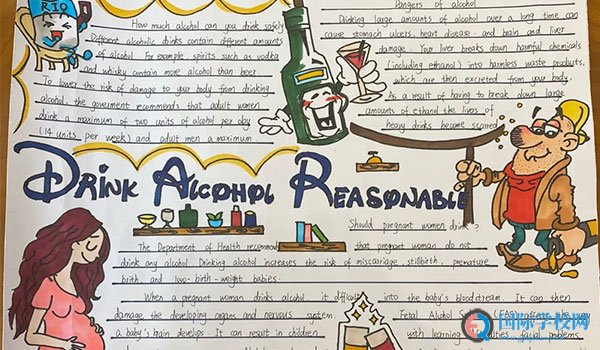 RIO
How much alcohol can you drink safely
Different alcoholic drinks contain different amounts
of alcohol. For example spirits such as vodka
and whisky contain more alcohol than beer.
To lower the risk of damage to your body from drinking
alcohol, the goverment recommends that adult women
drink a maximum of two units of alcohol per day
(14 units per week) and adult men a maximum
Dangers of alcohol
Drinking large amounts of alcohol over a long time can
cause stomach ulcers, heart disease and brain and liver
damage. Your liver breaks down harmful chemicals
(including ethanol) into harmless waste products,
which are then excreted from your body.
As a result of having to break down large
amounts of ethanol the livers of
heavy drinks become scarred
DRINK ALCOHOL REASONABLE
Should pregnant women drink?
The Department of Health recommends that pregnant woman do not
drink any alcohol Drinking alcohol increases the risk of miscarriage, stillbirth, premature
birth and low-birth-weight babies.
When a pregnant woman drinks alcohol it into the baby's bloodstream. It can then
damage the developing organs and nervous system. Fetal Alcohol (FAS) affects the way
a baby's brain develops. It can result in children with learning facial problems
国际学校网